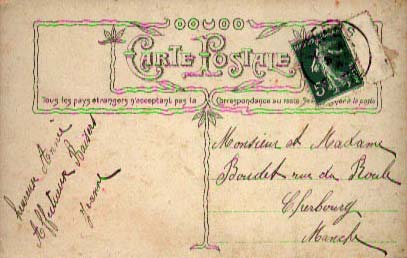 CARTE POSTALE
Tous les pays étrangers n'acceptent pas la Correspondance au recto
Heureuse Année
Affectueux Baisers
Jeanne
Monsieur et Madame
Boudet rue du Roule
Cherbourg
Manche